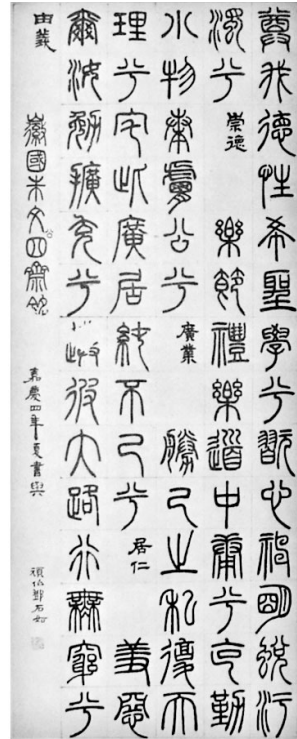 尊我德性希聖學兮翫心神明蛻污
濁兮 崇德 樂節禮樂道中庸兮克勤
小物奏膚公兮 廣業 勝己之私復天
理兮宅此廣居純不已兮 居仁 羞惡
爾汝勉擴充兮彼大路行無窮兮
由義 徽國朱文公四齋銘 嘉慶四年夏書與 頑伯鄧石如